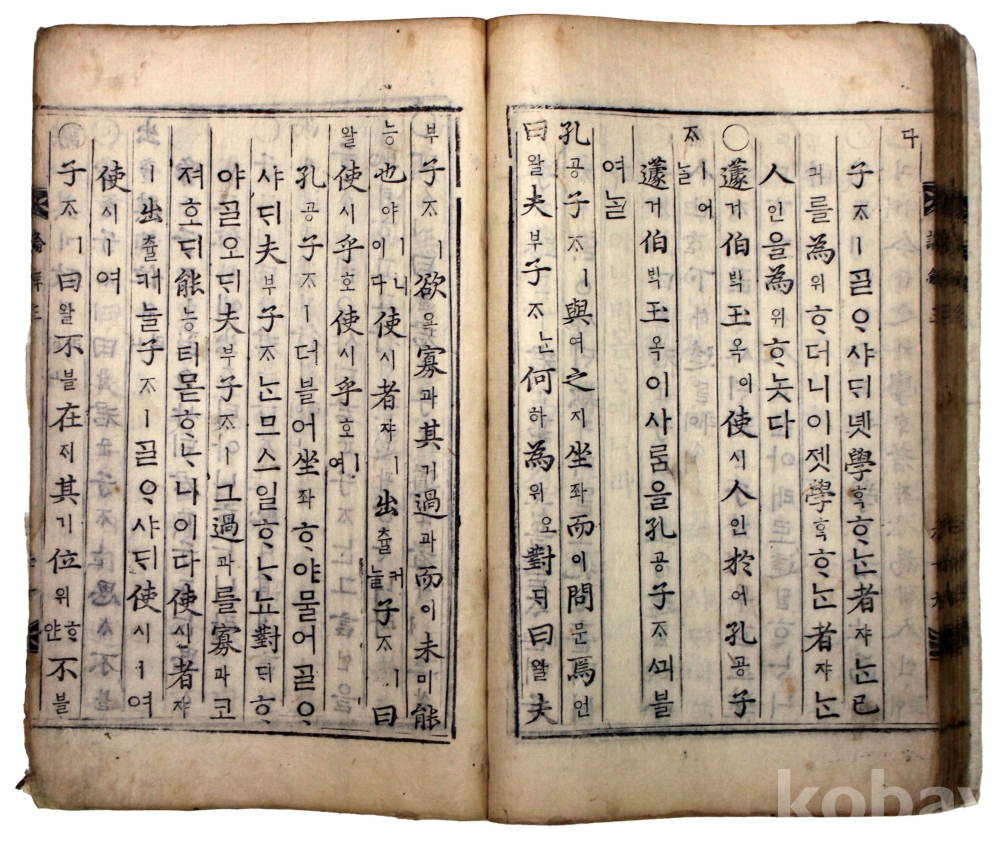 다
子ᄌᆞㅣᄀᆞᆯᄋᆞ샤ᄃᆡ녯學ᄒᆞᆨᄒᆞᄂᆞᆫ者쟈ᄂᆞᆫ己
긔를為위ᄒᆞ더니이젯學ᄒᆞᆨᄒᆞᄂᆞᆫ者쟈ᄂᆞᆫ
人인을為위ᄒᆞ놋다
○蘧거伯ᄇᆡᆨ玉옥이使시人인於어孔공子
ᄌᆞㅣ어ᄂᆞᆯ
蘧거伯ᄇᆡᆨ玉옥이사ᄅᆞᆷ을孔공子ᄌᆞᄭᅴ브리
여ᄂᆞᆯ
孔공子ᄌᆞㅣ與여之지坐좌而이問문焉언
曰왈夫부子ᄌᆞᄂᆞᆫ何하為위오對ᄃᆡ曰왈夫
부子ᄌᆞㅣ欲욕寡과其기過과而이未미能
능也야ㅣ니이다使시者쟈ㅣ出츌커ᄂᆞᆯ子ᄌᆞㅣ曰
왈使시乎호使시乎호여
孔공子ᄌᆞㅣ더블어坐좌ᄒᆞ야물어ᄀᆞᆯᄋᆞ
샤ᄃᆡ夫부子ᄌᆞᄂᆞᆫ므스일ᄒᆞᄂᆞ뇨對ᄃᆡᄒᆞ
야ᄀᆞᆯ오ᄃᆡ夫부子ᄌᆞㅣ그過과를寡과코
져호ᄃᆡ能능티몯ᄒᆞᄂᆞ니이다使시者쟈
ㅣ出츌커ᄂᆞᆯ子ᄌᆞㅣᄀᆞᆯᄋᆞ샤ᄃᆡ使시ㅣ여
使시ㅣ여
○子ᄌᆞㅣ曰왈不블在ᄌᆡ其기位위ᄒᆞ얀不블
kobay